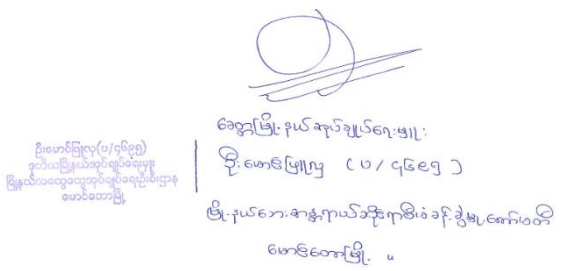 ဦးမောင်ဖြူလှ(ပ/၄၆၉၅)
ဒုတိယမြို့နယ်အုပ်ချုပ်ရေးမှူး
မြို့နယ်အထွေထွေအုပ်ချုပ်ရေးဦးစီးဌာန
မောင်တောမြို့
ခေတ္တမြို့နယ်အုပ်ချုပ်ရေးမှူး
ဦးမောင်ဖြူလှ (ပ/၄၆၉၅)
မြို့နယ်ဘေးအန္တရာယ်ဆိုင်ရာစီမံခန့်ခွဲမှုကော်မတီ
မောင်တောမြို့ ။